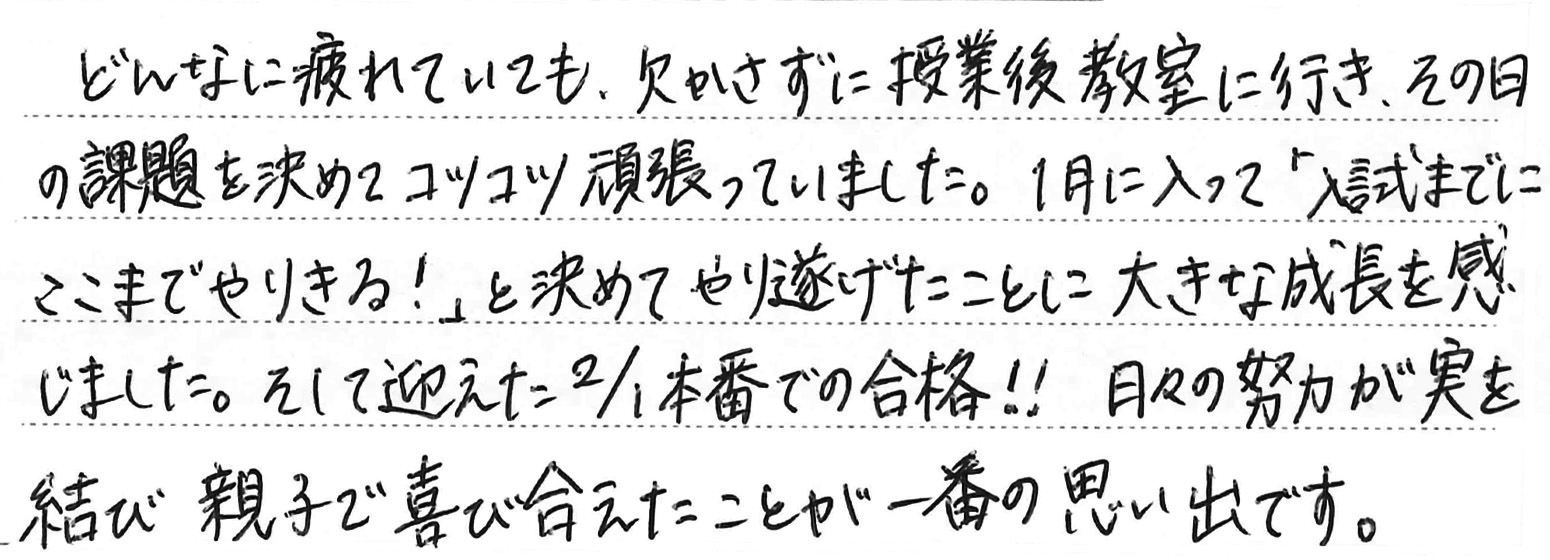 どんなに疲れていても、欠かさずに授業後教室に行き、その日
の課題を決めてコツコツ頑張っていました。1月に入って「入試までに
ここまでやりきる!」と決めてやり遂げたことに大きな成長を感
じました。そして迎えた2/1本番での合格!! 日々の努力が実を
結び 親子で喜び合えたことが一番の思い出です。